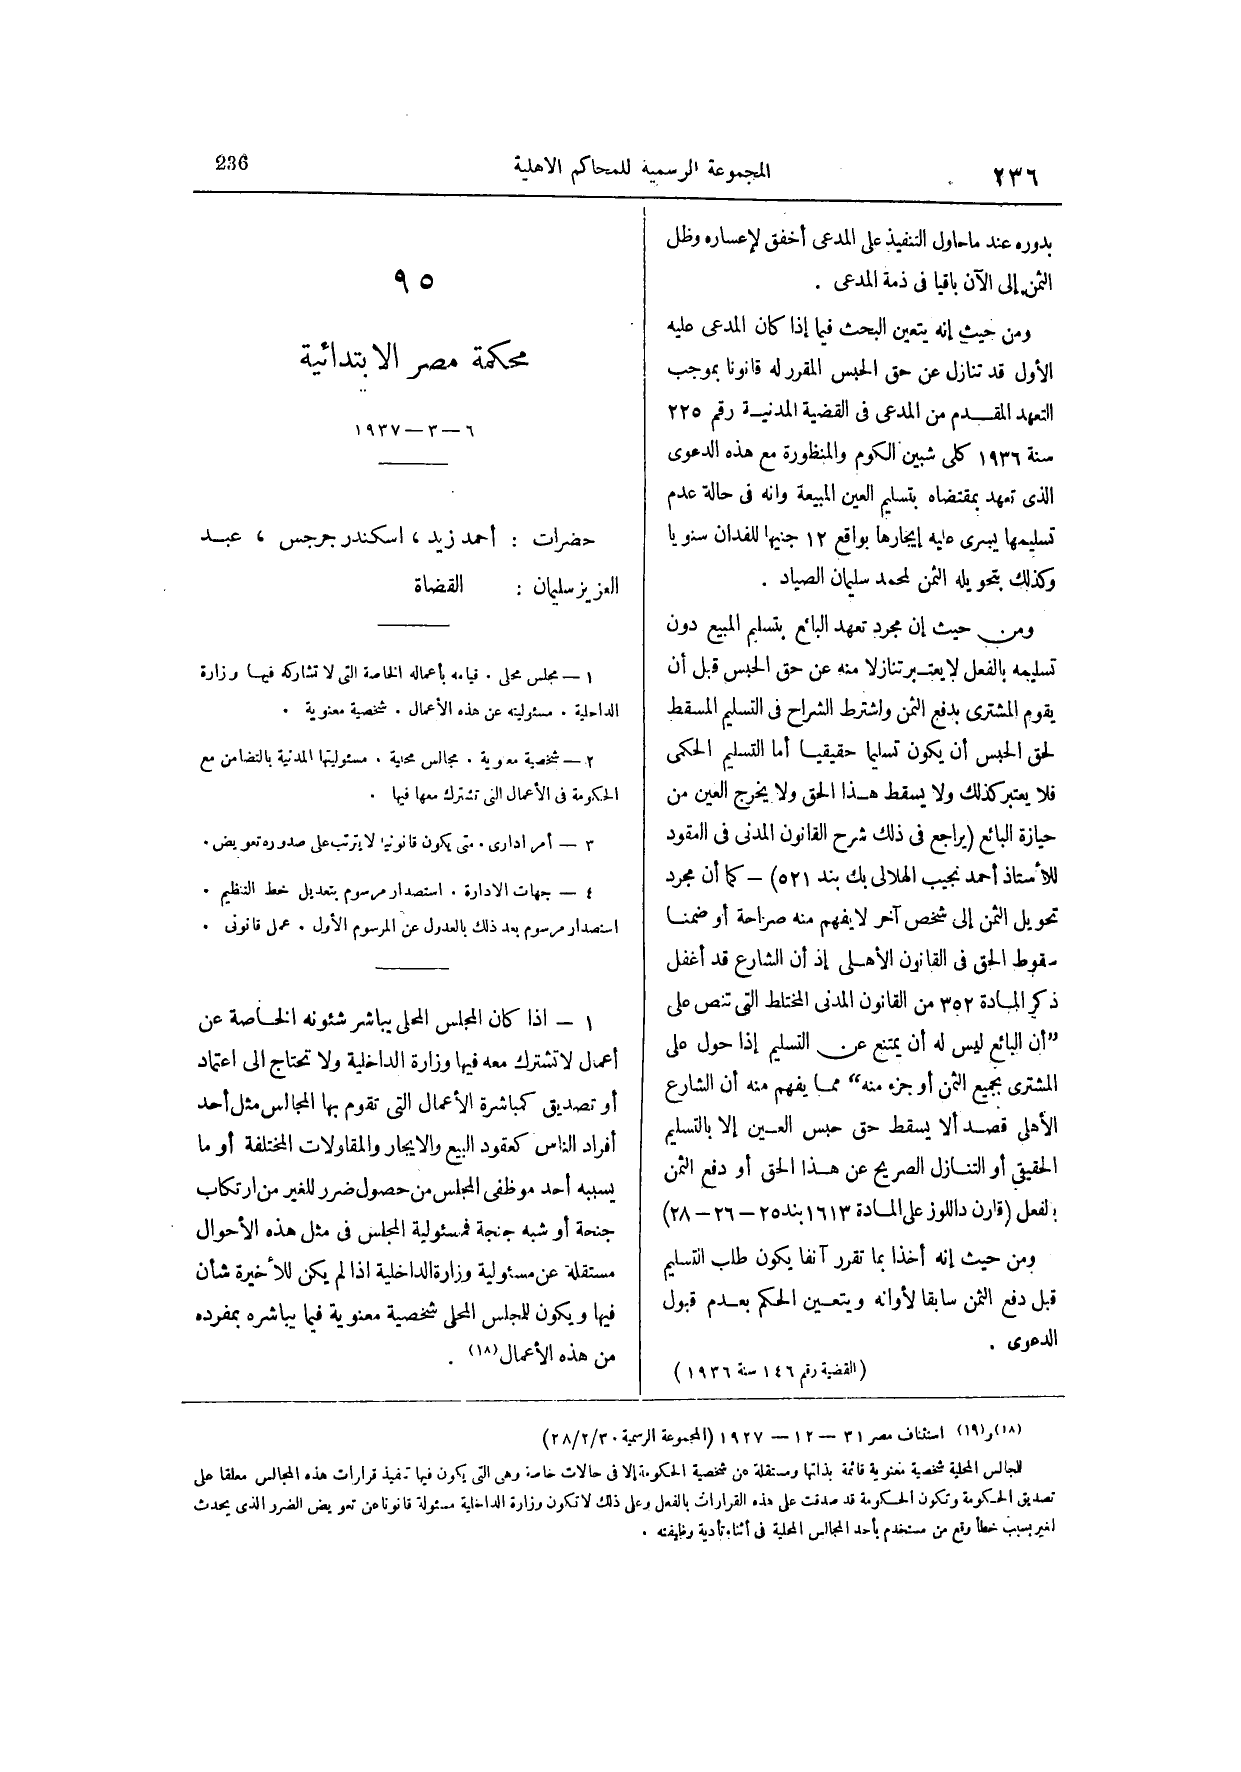 ٢٣٦ المجموعة الرسمية للمحاكم الاهلية 236
بدوره عند ماحاول التنفيذ على المدعى أخفق لإعساره وظل
الثمن إلى الآن باقيا فى ذمة المدعى .
ومن حيث إنه يتعين البحث فيما إذا كان المدعى عليه
الأول قد تنازل عن حق الحبس المقرر له قانونا بموجب
التعهد المقدم من المدعى فى القضية المدنية رقم ٢٢٥
سنة ١٩٣٦ كلى شبين الكوم والمنظورة مع هذه الدعوى
الذى تعهد بمقتضاه بتسليم العين المبيعة وانه فى حالة عدم
تسليمها يسرى عليه إيجارها بواقع ١٢ جنيها للفدان سنويا
وكذلك بتحويله الثمن لمحمد سليمان الصياد .
ومن حيث إن مجرد تعهد البائع بتسليم المبيع دون
تسليمه بالفعل لا يعتبر تنازلا منه عن حق الحبس قبل أن
يقوم المشترى بدفع الثمن واشترط الشراح فى التسليم المسقط
لحق الحبس أن يكون تسليما حقيقيا أما التسليم الحكمى
فلا يعتبر كذلك ولا يسقط هذا الحق ولا يخرج العين من
حيازة البائع (يراجع فى ذلك شرح القانون المدنى فى العقود
للأستاذ أحمد نجيب الهلالى بك بند ٥٢١) – كما أن مجرد
تحويل الثمن إلى شخص آخر لا يفهم منه صراحة أو ضمنا
سقوط الحق فى القانون الأهلى إذ أن الشارع قد أغفل
ذكر المادة ٣٥٢ من القانون المدنى المختلط التى تنص على
”أن البائع ليس له أن يمتنع عن التسليم إذا حول على
المشترى بجميع الثمن أو جزء منه“ مما يفهم منه أن الشارع
الأهلى قصد ألا يسقط حق حبس العين إلا بالتسليم
الحقيقى أو التنازل الصريح عن هذا الحق أو دفع الثمن
بالفعل (قارن داللوز على المادة ١٦١٣ بند ٢٥ – ٢٦ – ٢٨)
ومن حيث إنه أخذا بما تقرر آنفا يكون طلب التسليم
قبل دفع الثمن سابقا لأوانه ويتعين الحكم بعدم قبول
الدعوى .
(القضية رقم ١٤٦ سنة ١٩٣٦)
٩٥
محكمة مصر الابتدائية
٦ – ٣ – ١٩٣٧
حضرات : أحمد زيد ، اسكندر جرجس ، عبد
العزيز سليمان : القضاة
١ – مجلس محلى . قيامه بأعماله الخاصة التى لا تشاركه فيها وزارة
الداخلية . مسئوليته عن هذه الأعمال . شخصية معنوية .
٢ – شخصية معنوية . مجالس محلية . مسئوليتها المدنية بالتضامن مع
الحكومة فى الأعمال التى تشترك معها فيها .
٣ – أمر ادارى . متى يكون قانونيا لا يترتب على صدوره تعويض .
٤ – جهات الادارة . استصدار مرسوم بتعديل خط التنظيم .
استصدار مرسوم بعد ذلك بالعدول عن المرسوم الأول . عمل قانونى .
١ – اذا كان المجلس المحلى يباشر شئونه الخاصة عن
أعمال لا تشترك معه فيها وزارة الداخلية ولا تحتاج الى اعتماد
أو تصديق كمباشرة الأعمال التى تقوم بها المجالس مثل أحد
أفراد الناس كعقود البيع والايجار والمقاولات المختلفة أو ما
يسببه أحد موظفى المجلس من حصول ضرر للغير من ارتكاب
جنحة أو شبه جنحة فمسئولية المجلس فى مثل هذه الأحوال
مستقلة عن مسئولية وزارة الداخلية اذا لم يكن للأخيرة شأن
فيها ويكون للمجلس المحلى شخصية معنوية فيما يباشره بمفرده
من هذه الأعمال (١٨) .
(١٨) و(١٩) استئناف مصر ٣١ – ١٢ – ١٩٢٧ (المجموعة الرسمية ٢٨/٢/٣٠)
للمجالس المحلية شخصية معنوية قائمة بذاتها ومستقلة عن شخصية الحكومة إلا فى حالات خاصة وهى التى يكون فيها تنفيذ قرارات هذه المجالس معلقا على
تصديق الحكومة وتكون الحكومة قد صدقت على هذه القرارات بالفعل وعلى ذلك لا تكون وزارة الداخلية مسئولة قانونا عن تعويض الضرر الذى يحدث
لغير بسبب خطأ وقع من مستخدم بأحد المجالس المحلية فى أثناء تأدية وظيفته .